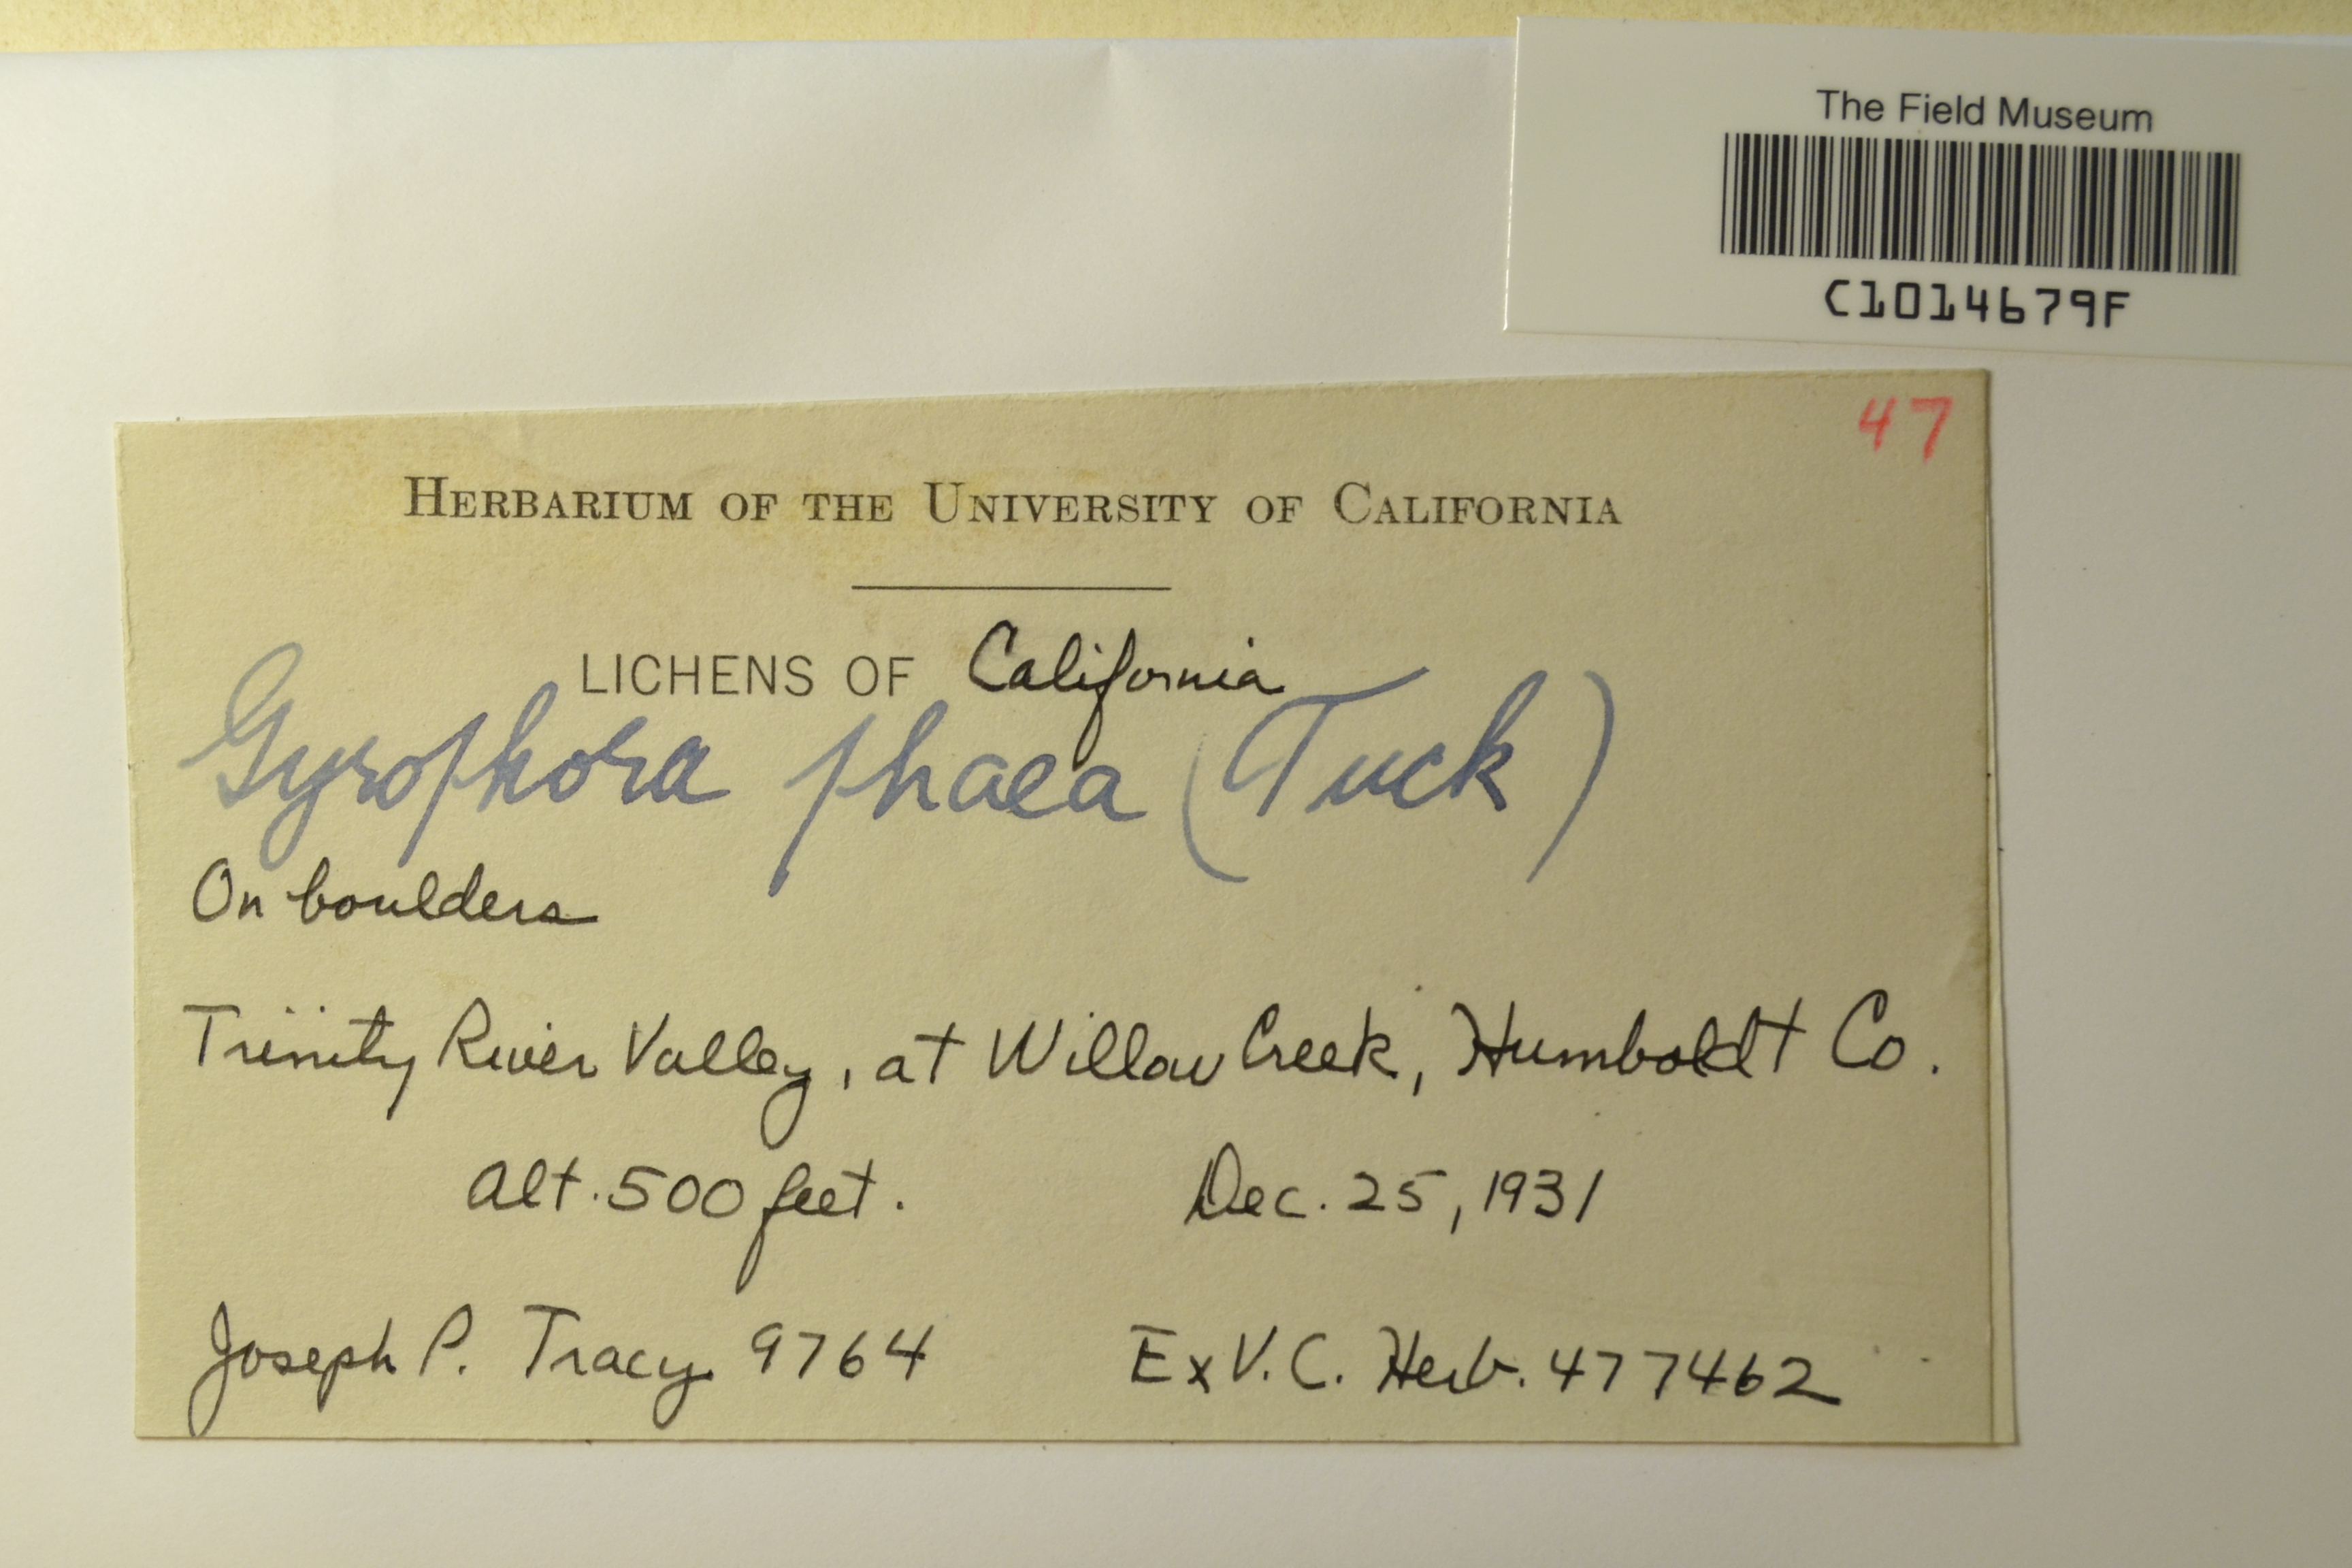 The Field Museum
C1014679F
47
HERBARIUM OF THE UNIVERSITY OF CALIFORNIA
LICHENS OF California
Gyrophora phaea (Tuck)
On boulders
Trinity River Valley, at Willow Creek, Humboldt Co.
Alt. 500 feet. Dec. 25, 1931
Joseph P. Tracy 9764 Ex V. C. Herb. 477462